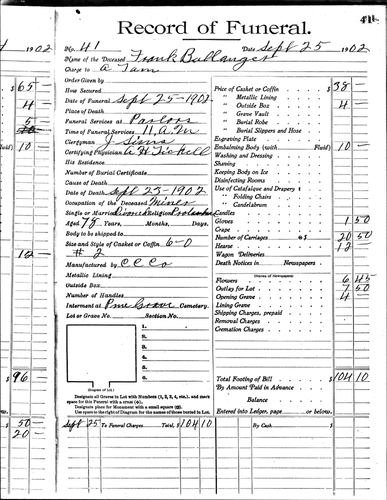 411
Record of Funeral.
1902 No. 41 Date Sept 25 1902
Name of the Deceased Frank Ballanger
Charge to A Tam
Order Given by
How Secured
Date of Funeral Sept 25-1902
Place of Death
Funeral Services at Parlors
Time of Funeral Services 11 A.M
Clergyman J Sims
Certifying Physician A H Tickell
His Residence
Number of Burial Certificate
Cause of Death
Date of Death Sept 23-1902
Occupation of the Deceased Miner
Single or Married Religion
Aged 78 Years, Months, Days.
Body to be shipped to
Size and Style of Casket or Coffin 6-0
# 2
Manufactured by C C Co
Metallic Lining
Outside Box
Number of Handles
Interment at Pine Grove Cemetery.
Lot or Grave No. Section No.
1.
2.
3.
4.
5.
6.
(Diagram of Lot.)
Designate all Graves in Lot with Numbers (1, 2, 3, 4, etc.), and mark
space for this Funeral with a cross (+).
Designate place for Monument with a small square (□).
Use space to the right of Diagram for the names of those buried in Lot.
Sept 25 To Funeral Charges Total, $ 104 10
Price of Casket or Coffin $ 38 —
" Metallic Lining
" Outside Box 4 —
" Grave Vault
" Burial Robe
" Burial Slippers and Hose
Engraving Plate
Embalming Body (with Fluid) 10 —
Washing and Dressing
Shaving
Keeping Body on Ice
Disinfecting Rooms
Use of Catafalque and Drapery
" Folding Chairs
" Candelabrum
Candles
Gloves 1 50
Crape
Number of Carriages @ $ 20 50
Hearse 12 —
Wagon Deliveries
Death Notices in Newspapers
(Names of Newspapers)
Flowers 6 45
Outlay for Lot 7 50
Opening Grave 4 —
Lining Grave
Shipping Charges, prepaid
Removal Charges
Cremation Charges
Total Footing of Bill $ 104 10
By Amount Paid in Advance
Balance
Entered into Ledger, page or below.
By Cash $
$ 65 —
4 —
5
10
Fluid) 10 —
12 —
$ 96 —
50 —
20 —